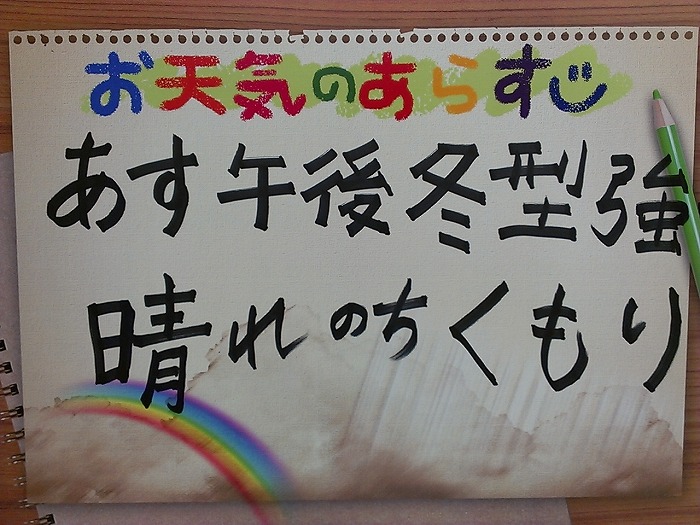 お天気のあらすじ
あす午後冬型強
晴れのちくもり